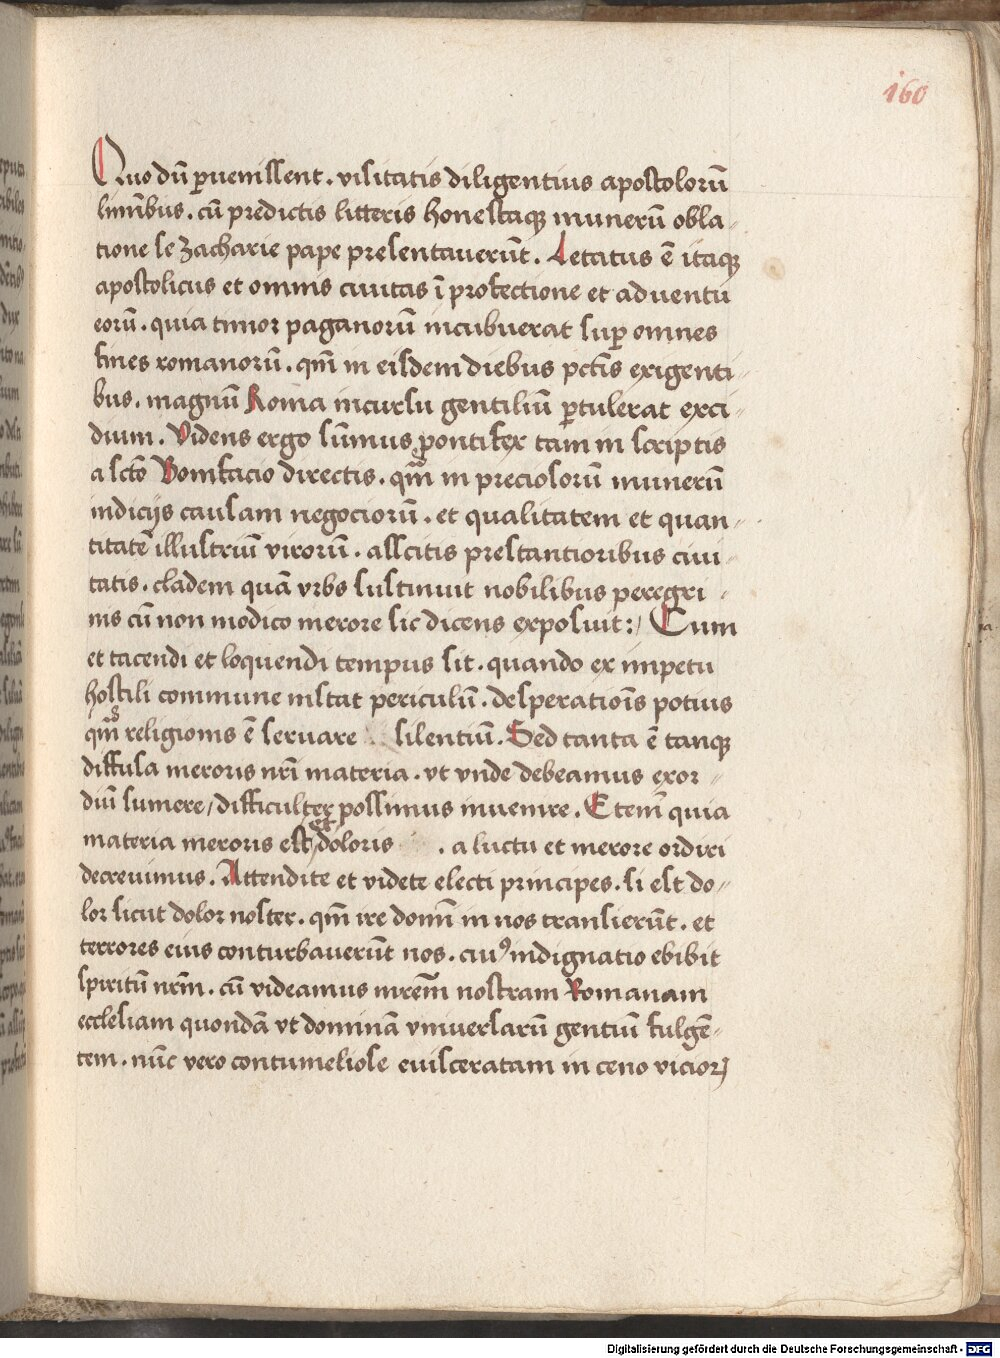 160
Quo dū ꝑuenissent . visitatis diligentius apostolorū
liminibus . cū predictis litteris honestaqꝫ munerū obla-
tione se zacharie pape presentauerūt . Letatus ē itaqꝫ
apostolicus et omnis ciuitas ī profectione et aduentu
eorū . quia timor paganorū incubuerat suꝑ omnes
fines romanorū . qm̄ in eisdem diebus pctīs exigenti-
bus . magnū Roma incursu gentiliū ꝑtulerat exci-
dium . Videns ergo sūmus pontifex tam in scriptis
a scto Bonifacio directis . qm̄ in preciosorū munerū
indicijs causam negociorū . et qualitatem et quan-
titatē illustriū virorū . asscitis prestantioribus ciui-
tatis . cladem quā vrbs sustinuit nobilibus peregri-
nis cū non modico merore sic dicens exposuit :/ Cum
et tacendi et loquendi tempus sit . quando ex impetu
hostili commune instat periculū . desperationis potius
qm̄ religionis ē seruare silentiū . Sed tanta ē tanqꝫ
diffusa meroris nrī materia . vt vnde debeamus exor-
diū sumere / difficulter possimus inuenire . Etenī quia
materia meroris est et doloris . a luctu et merore ordiri
decreuimus . Attendite et videte electi principes . si est do-
lor sicut dolor noster . qm̄ ire domī in nos transierūt . et
terrores eius conturbauerūt nos . cuiꝰ indignatio ebibit
spiritū nrm̄ . cū videamus mrem̄ nostram Romanam
ecclesiam quondā vt dominā vniuersarū gentiū fulgē-
tem . nūc vero contumeliose euisceratam in ceno viciorꝝ
Digitalisierung gefördert durch die Deutsche Forschungsgemeinschaft - DFG